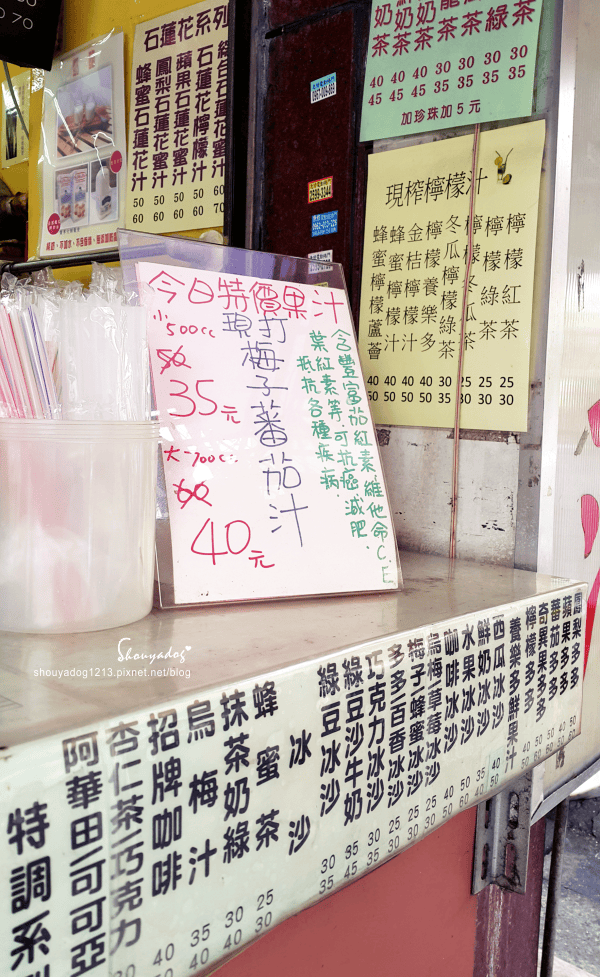 石蓮花系列
綜合石蓮花汁
石蓮花檸檬汁
蘋果石蓮花蜜汁
鳳梨石蓮花蜜汁
蜂蜜石蓮花汁
50 50 50 50 50
60 60 60 60 60
40 40 40 30 30 30 30
45 45 45 35 35 35 35
加珍珠加5元
現榨檸檬汁
檸檬紅茶
檸檬綠茶
檸檬冬瓜茶
冬瓜檸檬綠茶
檸檬養樂多
金桔檸檬汁
蜂蜜檸檬汁
蜂蜜檸檬蘆薈
40 40 40 40 30 25 25 25
50 50 50 50 35 30 30 30
今日特價果汁
現打梅子蕃茄汁
小500cc
50
35元
大-700cc
60
40元
含豐富茄紅素維他命C.E
葉紅素等.可抗癌.減肥.
抵抗各種疾病.
Shouyadog
shouyadog1213.pixnet.net/blog
特調系列
阿華田一可可亞
杏仁茶一巧克力
招牌咖啡
烏梅汁
抹茶奶綠
蜂蜜茶
冰沙
綠豆冰沙
綠豆沙牛奶
巧克力冰沙
多多百香冰沙
梅子蜂蜜冰沙
烏梅草莓冰沙
咖啡冰沙
水果冰沙
鮮奶冰沙
西瓜冰沙
養樂多鮮果汁
檸檬多多
奇異果多多
蕃茄多多
蘋果多多
鳳梨多多